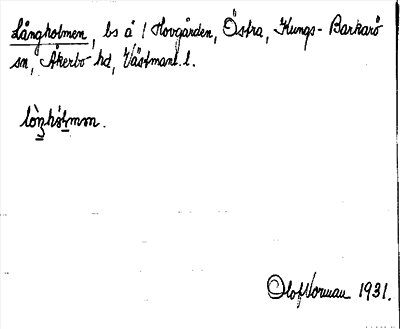 Långholmen, bs å / Hovgården, Östra, Kungs-Barkarö
sn, Åkerbo hd, Västmanl. l.
Olof Norman 1931.